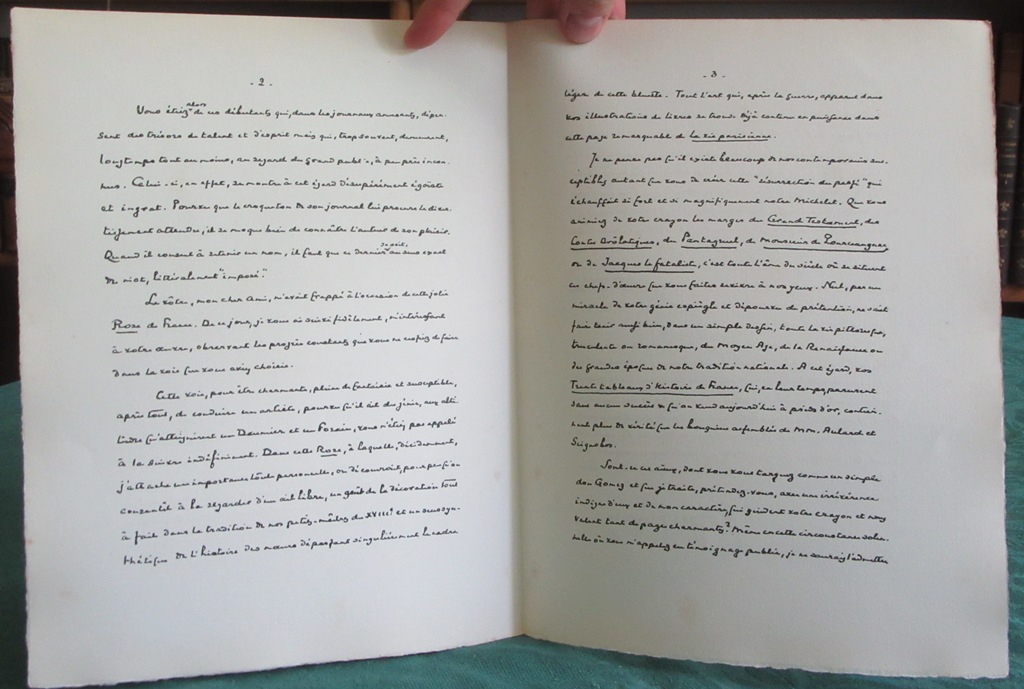 - 2 -
alors
Vous étiez de ces débutants qui, dans les journaux amusants, dépen-
sent des trésors de talent et d'esprit mais qui, trop souvent, demeurent,
longtemps tout au moins, au regard du grand public, à peu près incon-
nus. Celui-ci, en effet, se montre à cet égard désespérément égoïste
et ingrat. Pourvu que le croqueton de son journal lui procure le diver-
tissement attendu, il se moque bien de connaître l'auteur de son plaisir.
Quand il consent à retenir un nom, il faut que ce dernier au sens exact
du mot, littéralement "impose".
Le vôtre, mon cher ami, m'avait frappé à l'occasion de cette jolie
Rose de France. De ce jour, je vous ai suivi fidèlement, m'intéressant
à votre œuvre, observant les progrès constants que vous ne cessiez de faire
dans la voie que vous aviez choisie.
Cette voie, pour être charmante, pleine de fantaisie et susceptible,
après tout, de conduire un artiste, pourvu qu'il ait du génie, aux alti-
tudes qu'atteignirent un Daumier et un Forain, vous n'étiez pas appelé
à la suivre indéfiniment. Dans cette Rose, à laquelle, décidément,
j'attache une importance toute personnelle, on découvrait, pour peu qu'on
consentît à la regarder d'un œil libre, un goût de la décoration tout
à fait dans la tradition de nos petits-maîtres du XVIIIe et un sens syn-
thétique de l'histoire des mœurs dépassant singulièrement le cadre
- 3 -
léger de cette bluette. Tout l'art qui, après la guerre, apparut dans
vos illustrations de livres se trouve déjà contenu en puissance dans
cette page remarquable de La vie parisienne.
Je ne pense pas qu'il existe beaucoup de nos contemporains sus-
ceptibles autant que vous de créer cette "résurrection du passé" qui
échauffait si fort et si magnifiquement notre Michelet. Que vous
animiez de votre crayon les marges du Grand Testament, des
Contes Drôlatiques, du Pantagruel, de Monsieur de Pourceaugnac
ou de Jacques le fataliste, c'est toute l'âme du siècle où se situent
ces chefs-d'œuvre que vous faites revivre à nos yeux. Nul, par un
miracle de votre génie espiègle et dépourvu de prétention, ne sait
faire tenir aussi bien, dans un simple dessin, toute la vie pittoresque,
truculente ou romanesque, du Moyen Age, de la Renaissance ou
des grandes époques de notre tradition nationale. A cet égard, vos
Trente tableaux d'Histoire de France, qui, en leur temps, parurent
sans aucun succès & qu'on vend aujourd'hui à prix d'or, contien-
nent plus de vérité que les bouquins assemblés de Mm. Aulard et
Seignobos.
Sont-ce ces aïeux, dont vous vous targuez comme un simple
don Gomez et que je traite, prétendez-vous, avec une irrévérence
indigne d'eux et de mon caractère, qui guident votre crayon et nous
valent tant de pages charmantes? Même en cette circonstance solen-
nelle où vous m'appelez en témoignage public, je ne saurais l'admettre